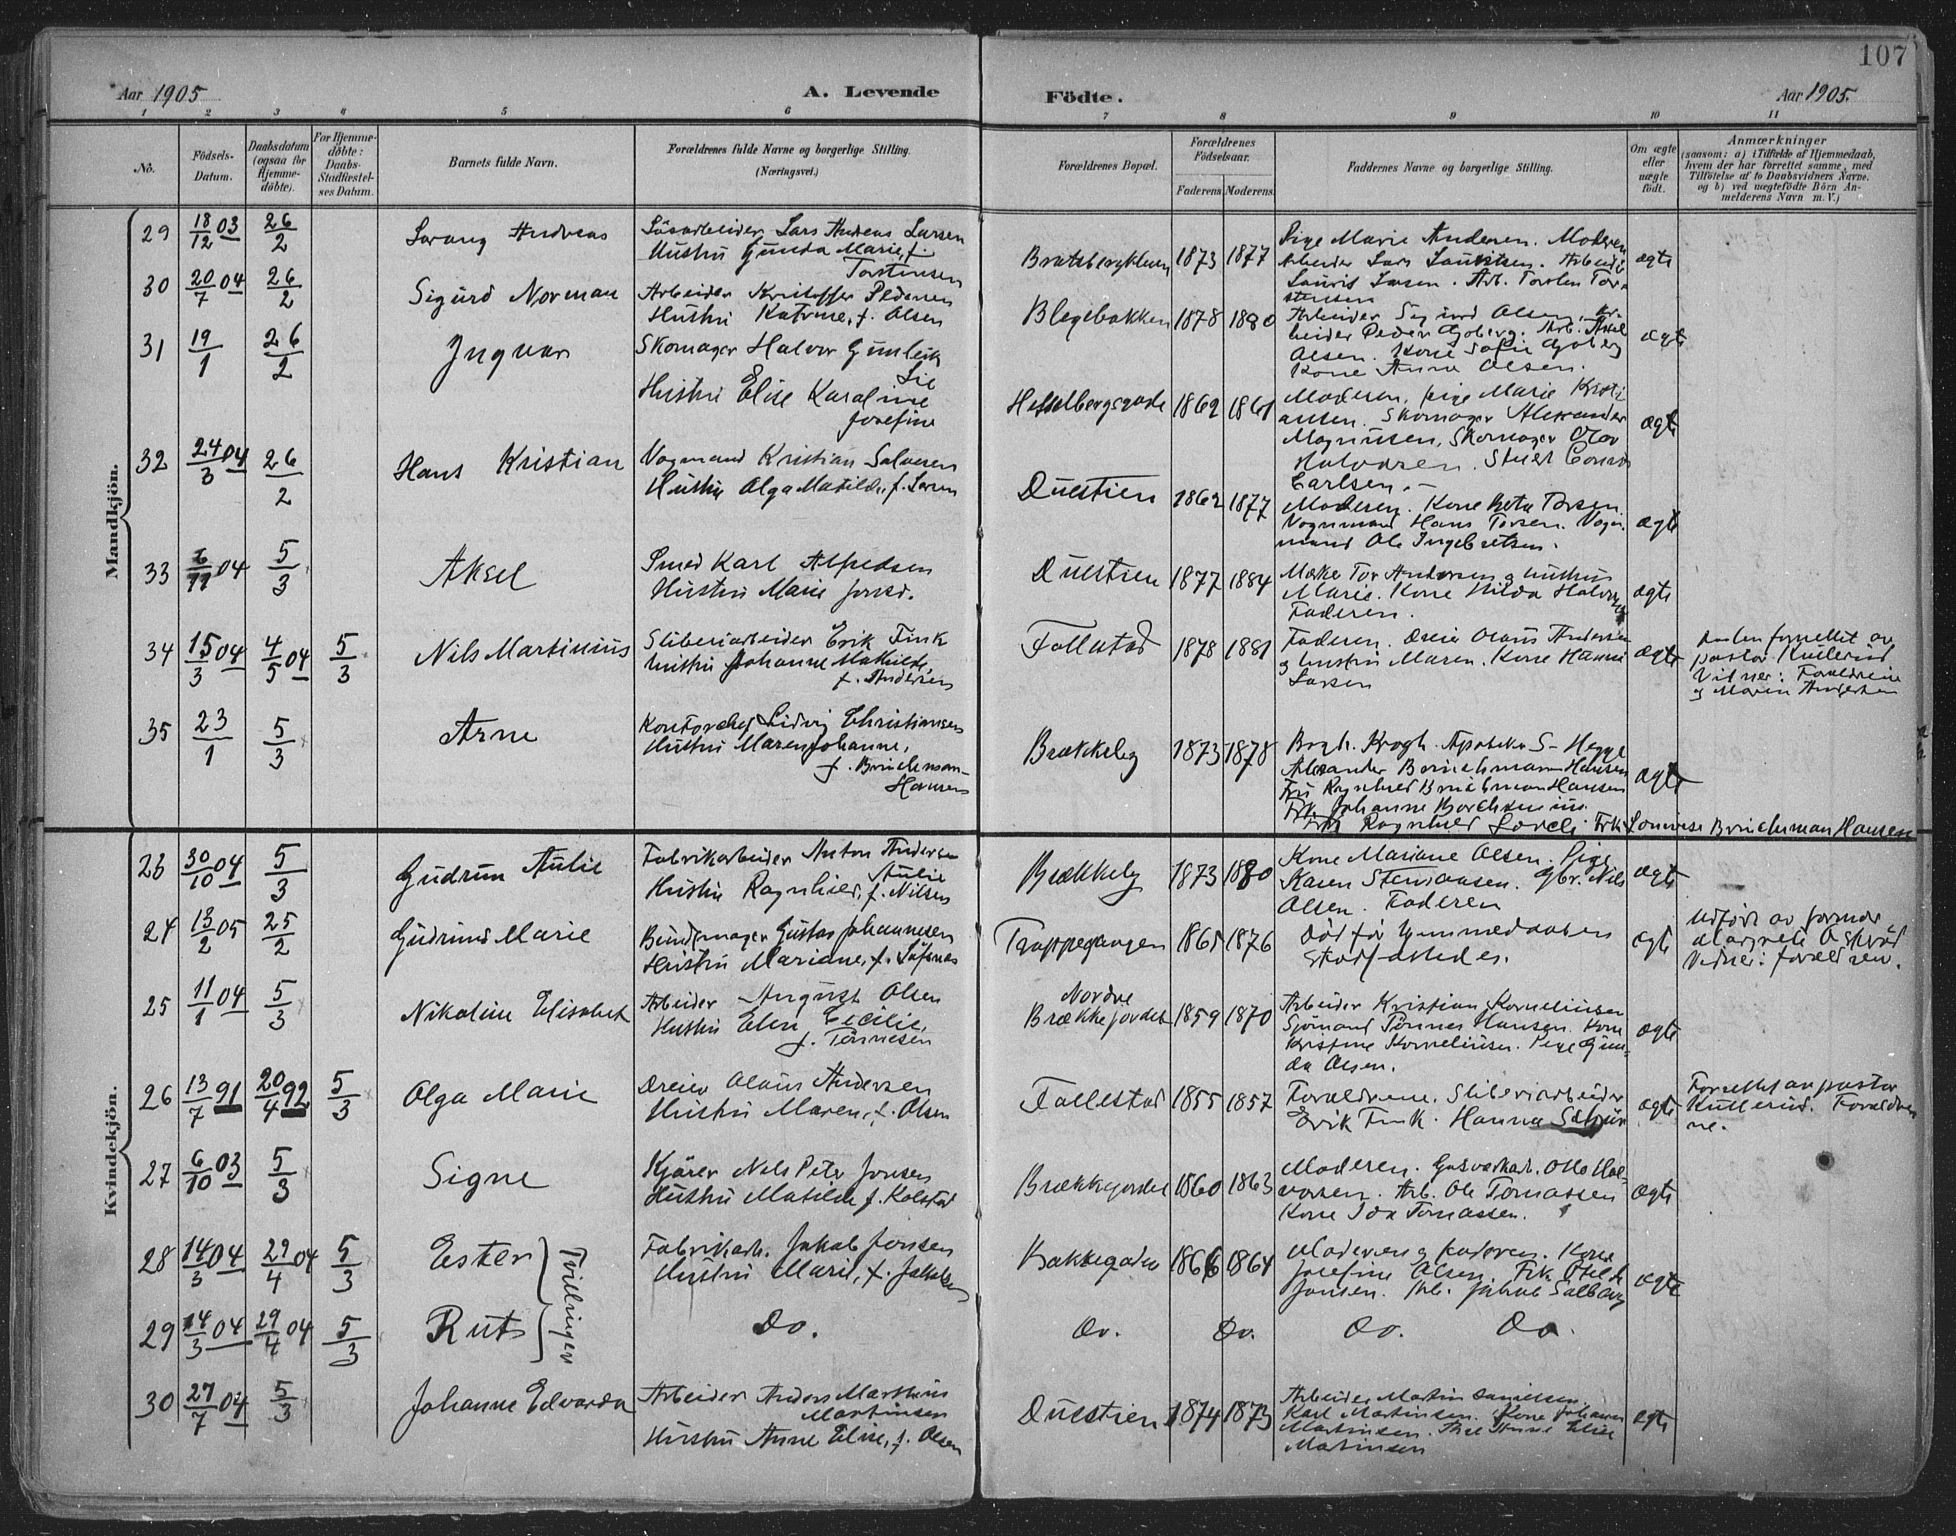 107
Aar 1905
A. Levende
Födte.
Aar 1905.
1 2 3 4 5 6 7 8 9 10 11
No.
Födsels-
Datum.
Daabsdatum
(ogsaa for
Hjemme-
döbte).
For Hjemme-
döbte:
Daabs-
Stadfæstel-
ses Datum.
Barnets fulde Navn.
Forældrenes fulde Navne og borgerlige Stilling.
(Næringsvei.)
Forældrenes Bopæl.
Forældrenes
Födselsaar.
Faderens Moderens
Faddernes Navne og borgerlige Stilling.
Om ægte
eller
uægte
födt.
Anmærkninger
(saasom: a) i Tilfælde af Hjemmedaab,
hvem der har forrettet samme, med
Tilföielse af to Daabsvidners Navne.
og b) ved uægtefödte Börn An-
melderens Navn m. V.)
Mandkjön.
29 18/12 03 26/2 Andreas
Lars Andreas Larsen
Hustru Gunda Marie, f.
Torstensen
1873 1877
Pige Marie Andersen. Moderen
ægte
30 20/7 04 26/2 Sigurd Norman
Arbeider Kristoffer Pedersen
Hustru Katrine, f. Olsen
Blegebakken 1878 1880
Arbeider Sigurd Olsen,
Olsen. Kone Sofie
Kone Anna Olsen.
ægte
31 19/1 26/2 Ingvar
Skomager Halvor Gunleik
Lie
Hustru Elise Karoline
Josefine
Hesselbergsgade 1862 1861
Moderen, pige Marie Kristi
ansen. Skomager Alexander
Magnusen, Skomager Olav
Halvorsen.
Carlsen.
ægte
32 24/3 04 26/2 Hans Kristian
Vognmand Kristian Salvesen
Hustru Olga Matilde, f. Larsen
Duestien 1862 1877
Moderen. Kone Berta Torsen.
Vognmand Hans Torsen. Vogn
mand Ole Ingebretsen.
ægte
33 6/11 04 5/3 Aksel
Smed Karl Alfredsen
Hustru Marie
Duestien 1877 1884
Tor Andersen og hustru
Marie. Kone Hilda
Faderen.
ægte
34 15/3 04 4/5 04 5/3 Nils Martinius
Sliberiarbeider Erik Fink
Hustru Johanne Mathilde,
f. Andersen
Follestad 1878 1881
Faderen. Dreier Olaus Andersen
og hustru Maren. Kone Hanna
Larsen
ægte
Daaben forrettet av
pastor Kullerud
Vidner: Forældrene
og Maren Andersen
35 23/1 5/3 Arne
Kontorchef Ludvig Christiansen
Hustru Maren Johanne,
f. Brinchman-
Hansen
Brækkeby 1873 1878
Krogh. Apoteker S. Hegge
Alexander Brinchmann Hansen
Fru Ragnhild Brinchman Hansen
Frk. Johanne
Ragnhild Frk. Lovise Brinchman Hansen
ægte
Kvindekjön.
23 30/10 04 5/3 Gudrun Aulie
Fabrikarbeider Anton Andersen
Aulie
Hustru Ragnhild, f. Nilsen
Brækkeby 1873 1880
Kone Mariane Olsen. Pige
Karen Stensaasen. Gbr. Nils
Olsen. Faderen
ægte
24 13/2 05 25/2 Gudrund Marie
Bundtmager Gustav Johannesen
Hustru Mariane, f.
Trappegangen 1865 1876
Død før hjemmedaaben
stadfæstedes.
ægte
Udført av jormor
Margrete
Vidner: forældrene.
25 11/1 04 5/3 Nikoline Elisabet
Arbeider August Olsen
Hustru Elen Cecilie,
f. Tønnesen
Nordre
Brækkejordet 1859 1870
Arbeider Kristian Korneliusen
Sjømand Tønnes Hansen. Kone
Kristine Korneliusen. Pige Gun-
da Olsen.
ægte
26 13/7 91 20/4 92 5/3 Olga Marie
Dreier Olaus Andersen
Hustru Maren, f. Olsen
Follestad 1855 1857
Forældrene. Sliberiarbeider
Erik Fink. Hanna
ægte
Forrettet av pastor
Kullerud. Forældre-
ne.
27 6/10 03 5/3 Signe
Kjører Nils Peter Jensen
Hustru Matilde f. Kolstad
Brækkejordet 1860 1863
Moderen. Gasværkarb. Otto Hal-
vorsen. Arb. Ole Tomassen
Kone Ida Tomassen.
ægte
28 14/3 04 29/4 04 5/3 Ester
Tvillinger
Fabrikarb. Jakob Jensen
Hustru Marie, f. Jakobsen
Bakkegaden 1866 1864
Moderen og faderen. Kone
Josefine Olsen. Frk.
Jonsen. Arb. Jakob Solberg
ægte
29 14/3 04 29/4 04 5/3 Rut
Do. Do. Do. Do. Do.
30 27/7 04 5/3 Johanne Edvarda
Arbeider Anders Marthins
Martinsen
Hustru Anne Elise, f. Olsen
Duestien 1874 1873
Arbeider Martin Danielsen.
Karl Martinsen. Kone Johanne
Martinsen. Pige Anne Elise
Martinsen
ægte